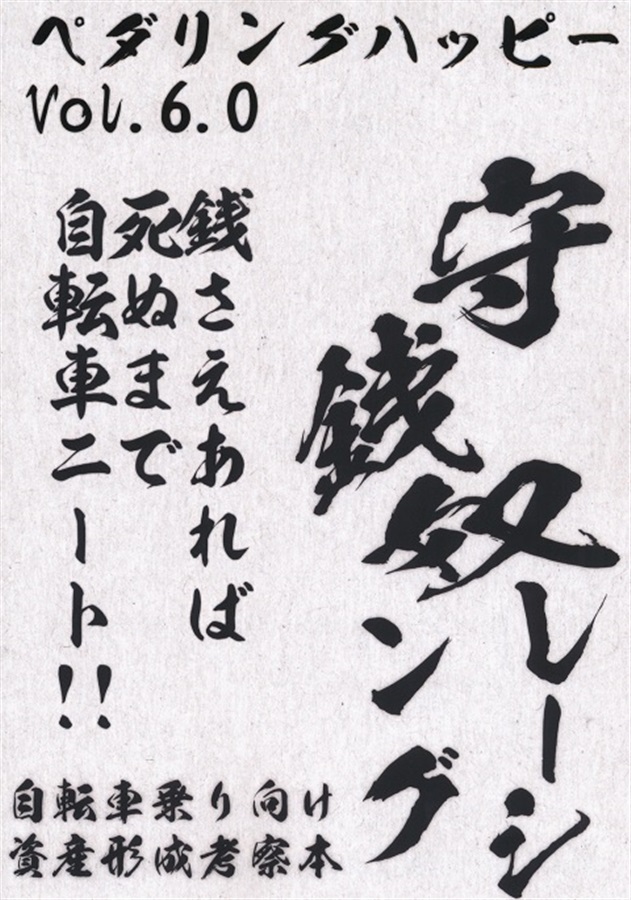 ペダリングハッピー
Vol.6.0
守銭奴レーシング
銭さえあれば
死ぬまで
自転車ニート!!
自転車乗り向け
資産形成考察本